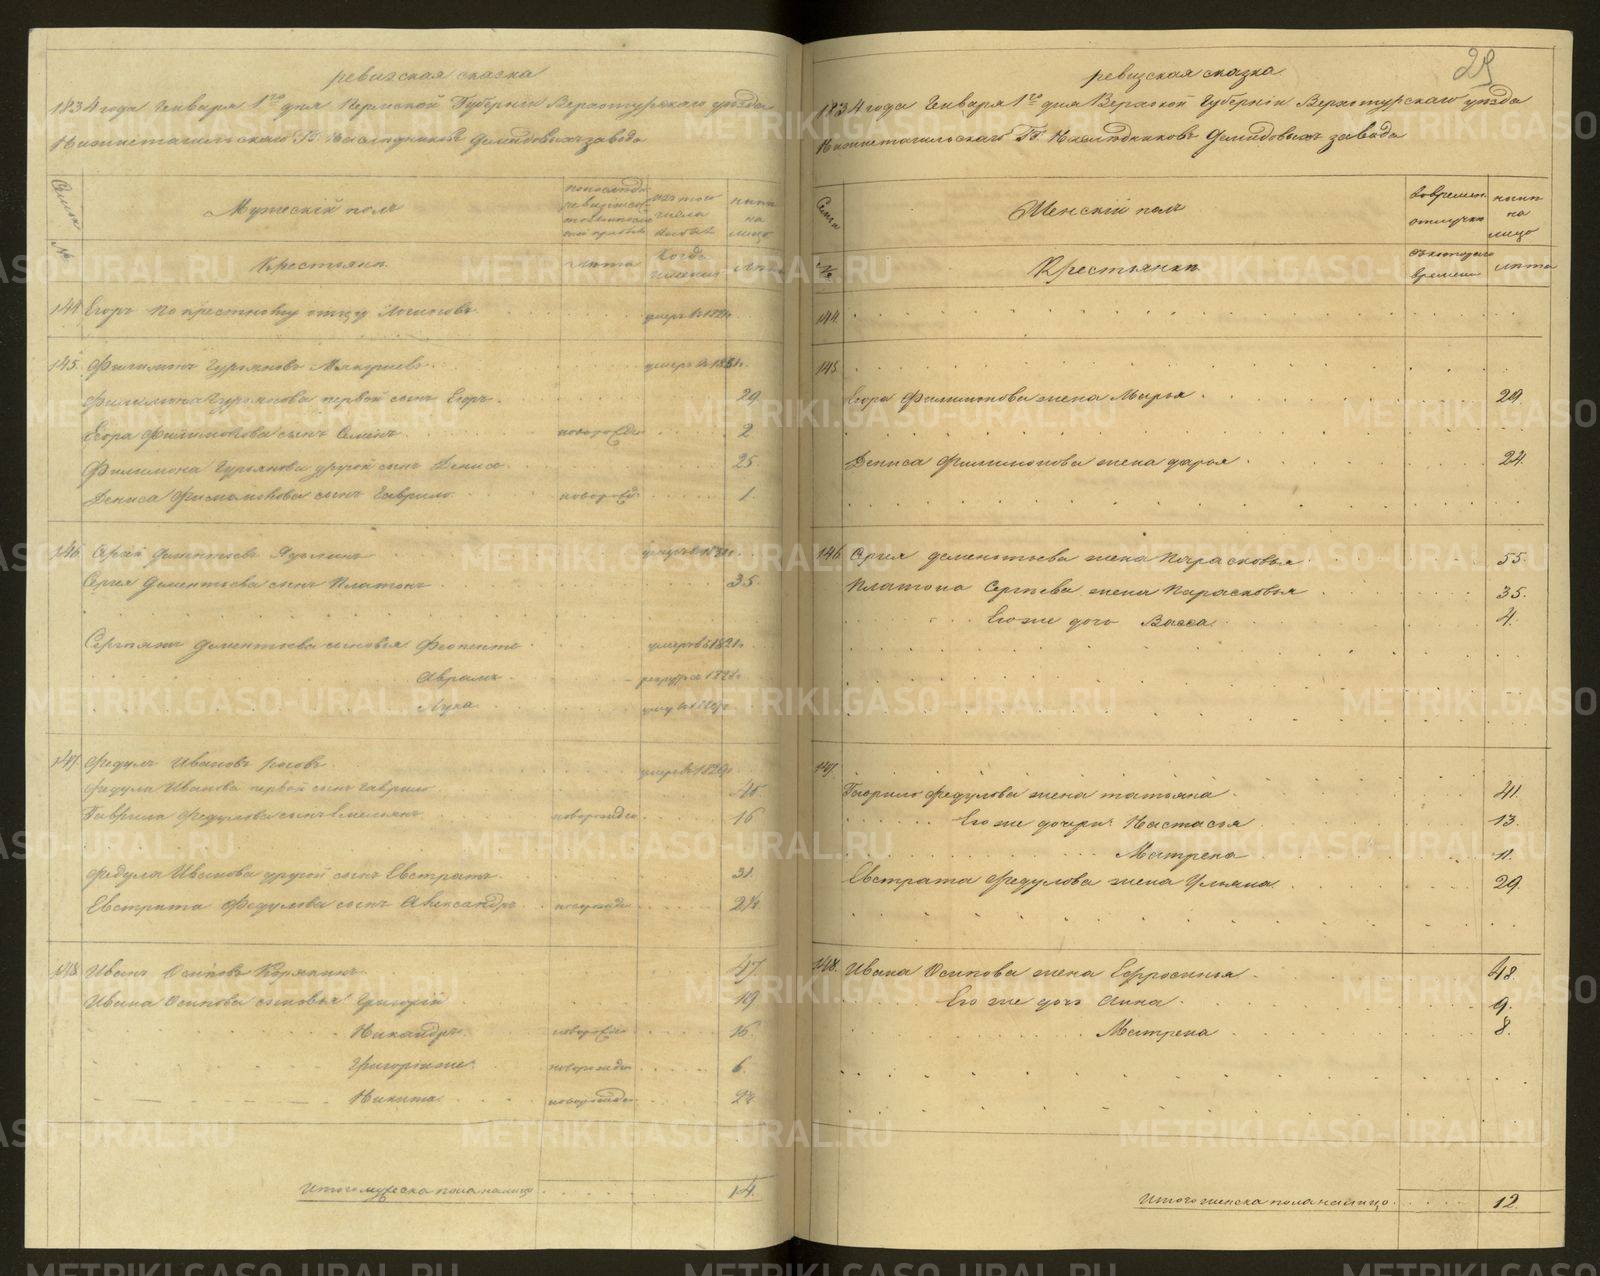 ревизская сказка
1834 года Генваря 1го дня Пермской Губернiи Верхотурскаго уезда
Нижнетагильскаго Гг. Наследниковъ Демидовыхъ завода
Семьи
№
Мужескiй полъ
изъ того числа выбыло
ныне на лицо
Крестьяне
лета
Когда именно
лета
144 Егоръ по крестному отцу Логиновъ умеръ въ 1821г.
145. Филимонъ Гурьяновъ умеръ въ 1831г.
Филимона Гурьянова первой сынъ Егоръ. 29
Егора Филимонова сынъ Семенъ новорожден 2
Филимона Гурьянова другой сынъ Денисъ. 25
Дениса Филимонова сынъ Гаврило новорожд. 1.
146. Сергей Дементьевъ
Сергея Дементьева сынъ Платонъ 35.
Сергея Дементьева сыновья Феопентъ умеръ въ 1821г.
Аврамъ
Лука
147 Федулъ Ивановъ
Федула Иванова первой сынъ Гаврило
Гаврила Федулова сынъ Емельянъ новорожден 16
Федула Иванова другой сынъ Евстратъ. 31.
Евстрата Федулова сынъ Александръ новорожден
148 Иванъ Осиповъ Корякинъ 47
Ивана Осипова сыновья Григорiй 19
Никандръ новорожден 16.
Григорiй же новорожден 6.
Никита новорожден
Итого мужеска пола на лицо 14.
29
ревизская сказка
1834 года Генваря 1го дня Губернiи Верхотурскаго уезда
Нижнетагильскаго Гг. Наследниковъ Демидовыхъ завода
Семьи
№
Женскiй полъ
во времен. отлучке
ныне на лицо
Крестьянки
съ котораго времени
лета
144
145.
Егора Филимонова жена Марья 29
Дениса Филимонова жена Дарья 24.
146 Сергея Дементьева жена Парасковья 55.
Платона Сергеева жена Парасковья 35.
Его же дочь Васса. 4.
147
Гаврило Федулова жена Татьяна 41.
Его же дочери Настасья 13.
Матрена 11.
Евстрата Федулова жена Ульяна 29.
148. Ивана Осипова жена Ефросинья 48.
Его же дочь Анна. 9.
Матрена 8.
Итого женска пола на лицо 12.
METRIKI.GASO-URAL.RU